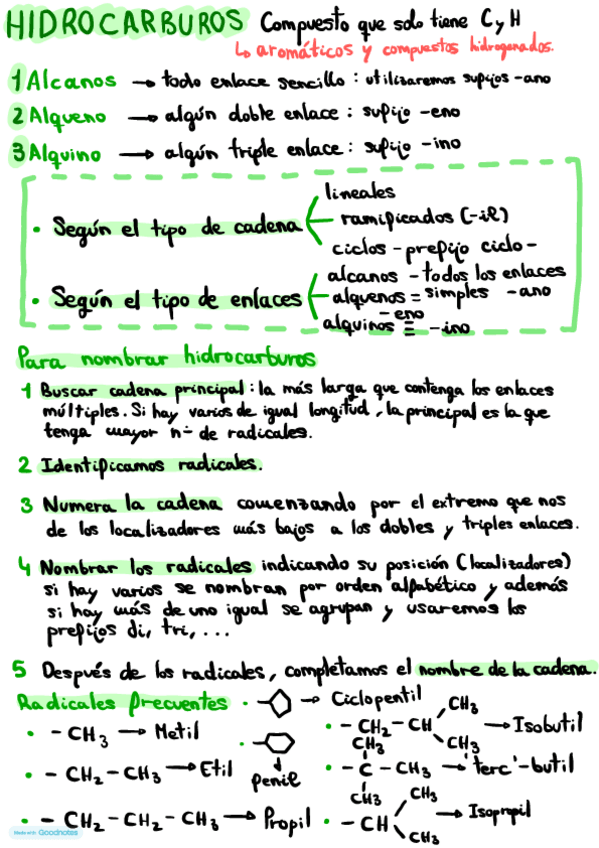 HIDROCARBUROS Compuesto que solo tiene C y H
↳ aromáticos y compuestos hidrogenados.
1 Alcanos → todo enlace sencillo : utilizaremos sufijos -ano
2 Alqueno → algún doble enlace : sufijo -eno
3 Alquino → algún triple enlace : sufijo -ino
• Según el tipo de cadena
lineales
ramificados (-il)
ciclos - prefijo ciclo -
• Según el tipo de enlaces
alcanos - todos los enlaces
simples -ano
alquenos =
- eno
alquinos ≡ -ino
Para nombrar hidrocarburos
1 Buscar cadena principal : la más larga que contenga los enlaces
múltiples. Si hay varios de igual longitud, la principal es la que
tenga mayor nº de radicales.
2 Identificamos radicales.
3 Numera la cadena comenzando por el extremo que nos
de los localizadores más bajos a los dobles y triples enlaces.
4 Nombrar los radicales indicando su posición (localizadores)
si hay varios se nombran por orden alfabético y además
si hay más de uno igual se agrupan y usaremos los
prefijos di, tri, ...
5 Después de los radicales, completamos el nombre de la cadena.
Radicales frecuentes
• → Ciclopentil
• - CH₃ → Metil
• - CH₂ - CH₃ → Etil
• - CH₂ - CH₂ - CH₃ → Propil
• fenil
• - CH₂ - CH CH₃ CH₃ → Isobutil
CH₃
• - C - CH₃ → 'terc'-butil
CH₃
• - CH CH₃ CH₃ → Isopropil
Made with Goodnotes